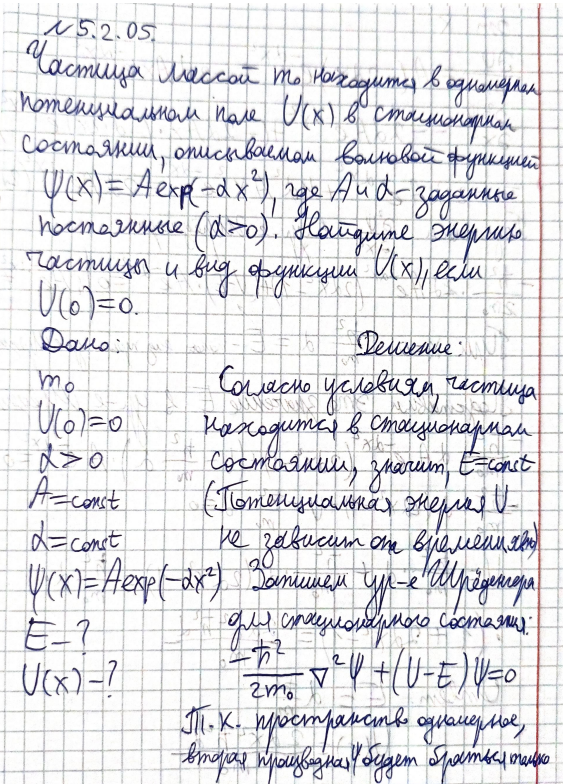 №5.2.05.
Частица массой m₀ находится в одномерном
потенциальном поле U(x) в стационарном
состоянии, описываемом волновой функцией
ψ(x)=Aexp(-αx²), где A и α-заданные
постоянные (α>0). Найдите энергию
частицы и вид функции U(x), если
U(0)=0.
Дано: Решение:
m₀ Согласно условиям, частица
U(0)=0 находится в стационарном
α>0 состоянии, значит, E=const
A=const (Потенциальная энергия U-
α=const не зависит от времени
ψ(x)=Aexp(-αx²) Запишем ур-е Шрёдингера
E-? для стационарного состояния:
U(x)-? -ħ²/2m₀ ∇²ψ+(U-E)ψ=0
Т.к. пространство одномерное,
вторая производная ψ будет браться только